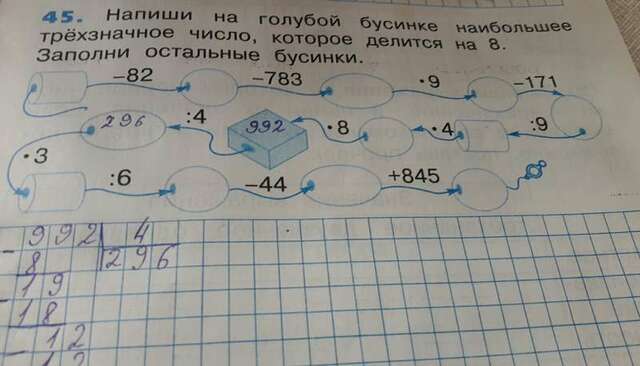 45. Напиши на голубой бусинке наибольшее
трёхзначное число, которое делится на 8.
Заполни остальные бусинки.
−82 −783 ·9 −171
296 :4 992 ·8 ·4 :9
·3 :6 −44 +845
− 992 4
8 296
− 19
18
− 12
12